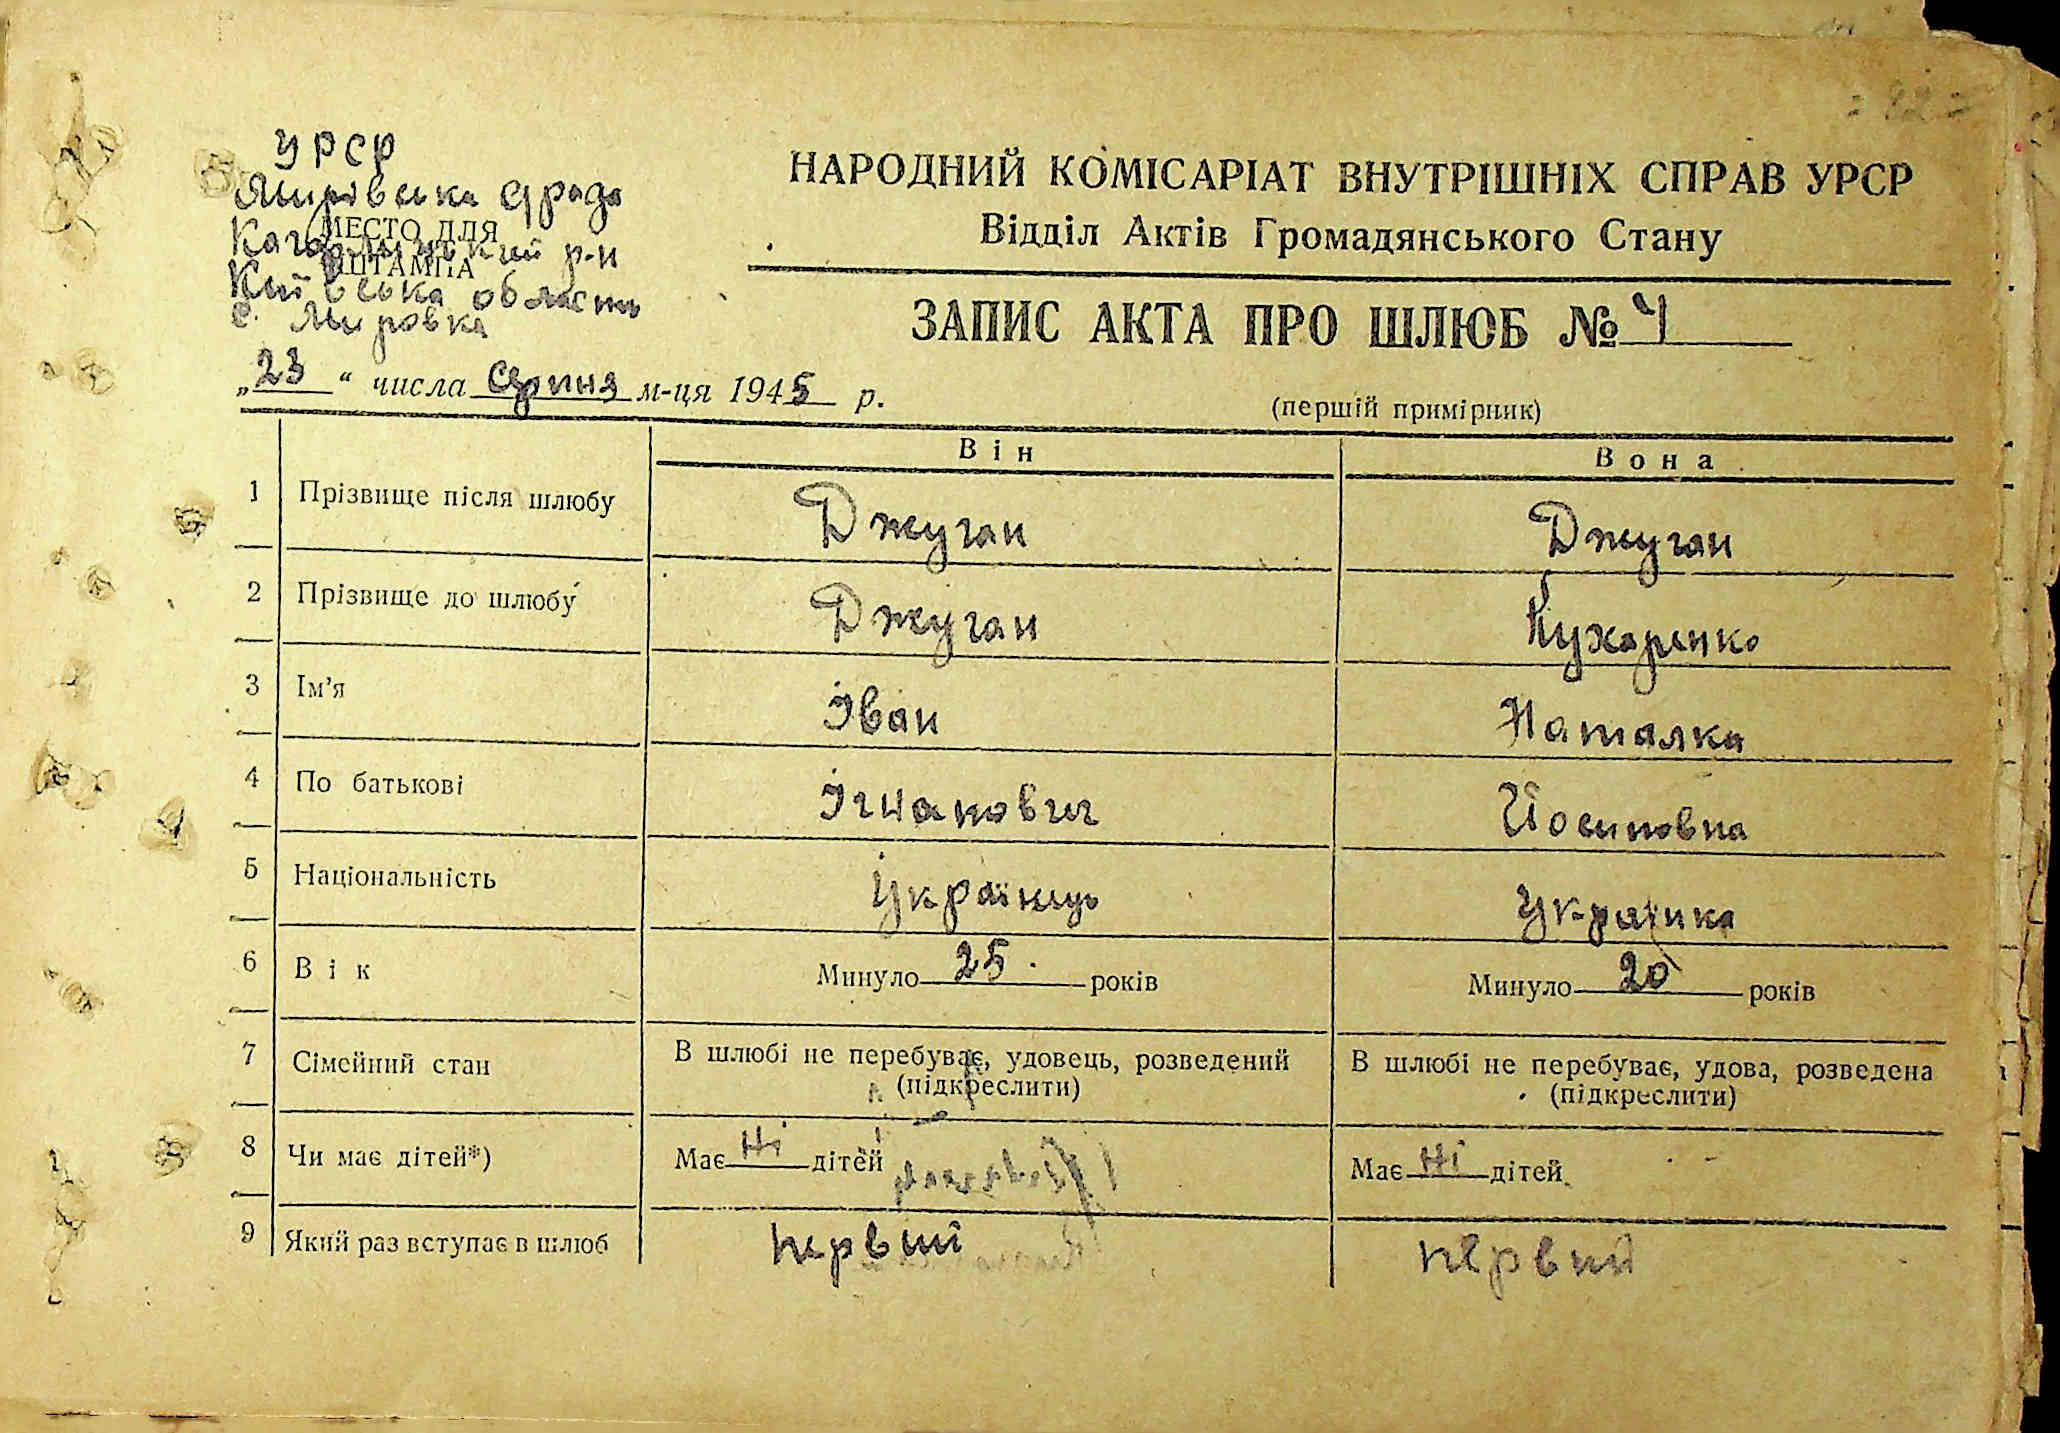 = 82 =
УРСР
Мирівська с/рада
МЕСТО ДЛЯ
Кагарлицький р-н
ШТАМПА
Київська область
с. Мировка
НАРОДНИЙ КОМІСАРІАТ ВНУТРІШНІХ СПРАВ УРСР
Відділ Актів Громадянського Стану
ЗАПИС АКТА ПРО ШЛЮБ № 4
„23“ числа серпня м-ця 1945 р.
(першій примірник)
Він Вона
1 Прізвище після шлюбу Джуган Джуган
2 Прізвище до шлюбу Джуган Кухаренко
3 Ім'я Іван Наталка
4 По батькові Ігнатович Йосиповна
5 Національність Українець Українка
6 Вік Минуло 25 років Минуло 20 років
7 Сімейний стан В шлюбі не перебуває, удовець, розведений В шлюбі не перебуває, удова, розведена
(підкреслити) (підкреслити)
8 Чи має дітей*) Має Ні дітей Має Ні дітей
9 Який раз вступає в шлюб первий первий